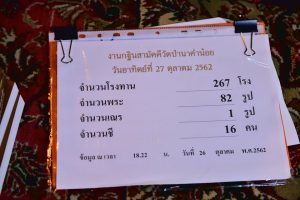 งานกฐินสามัคคีวัดป่านาคำน้อย
วันอาทิตย์ที่ 27 ตุลาคม 2562
จำนวนโรงทาน 267 โรง
จำนวนพระ 82 รูป
จำนวนเณร 1 รูป
จำนวนชี 16 คน
ข้อมูล ณ เวลา 18.22 น. วันที่ 26 ตุลาคม พ.ศ.2562